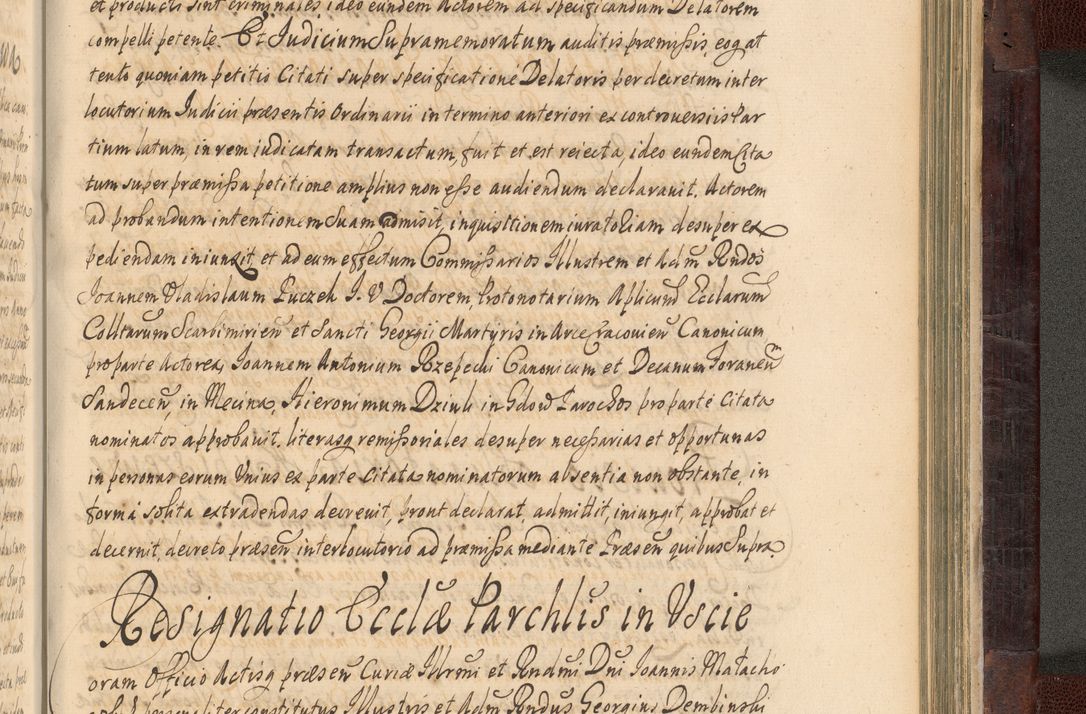 et producti sint criminales ideo eundem Actorem ad specificandum Delatorem
compelli petente. Et Judicium Supramemoratum auditis præmissis, eoq at
tento quoniam petitio Citati super specificatione Delatoris per decretum inter
locutorium Judicii præsentis Ordinarii in termino anteriori ex controversiis Par
tium latum, in rem iudicatam transactum, fuit et est reiecta, ideo eundem Cita
tum super præmissa petitione amplius non esse audiendum declaravit. Actorem
ad probandum intentionem suam admisit, inquisitionem iuratoriam desuper ex
pediendam iniunxit et ad eum effectum Commissarios Illustrem et Adm Rndos
Joannem Vladislaum Puczek J. V Doctorem, Protonotarium Aplicum Ecclarum
Colltarum Scarbimirien et Sancti Georgii Martyris in Arce Cracovien Canonicum
pro parte Actorea, Joannem Antonium Rzepecki Canonicum et Decanum Foraneum
Sandecen, in Mecina, Hieronimum Dziuli in Gdow Parochos pro parte Citata
nominatos approbavit. literasq remissoriales desuper necessarias et opportunas
in personas eorum Unius ex parte Citata nominatorum absentia non obstante, in
forma solita extradendas decrevit, prout declarat, admittit, iniungit, approbat et
decernit, decreto præsen interlocutorio ad præmissa mediante Præsen quibus Supra.
Resignatio Ecclæ Parchlis in Uscie
oram Officio Actisq præsen Curiæ Illrmi et Rndmi Dni Joannis Malacho
personaliter constitutus Illustris et Adm Rndus Georgius Dembinski